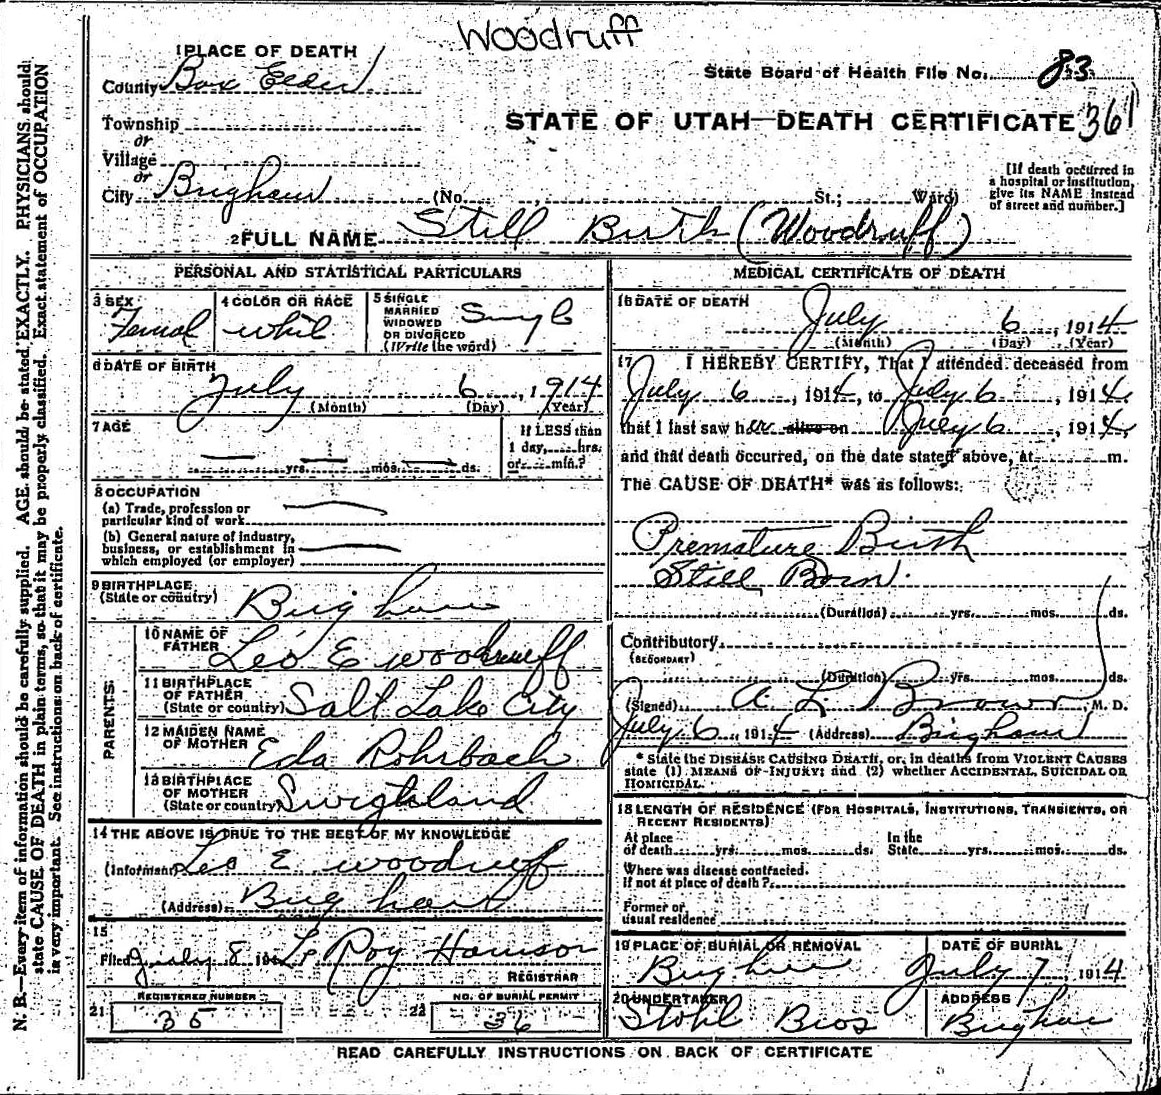 Woodruff
1 PLACE OF DEATH
County Box Elder
State Board of Health File No. 83
Township
or
Village
or
City Brigham (No. , St.; Ward)
STATE OF UTAH—DEATH CERTIFICATE 361
[If death occurred in
a hospital or institution,
give its NAME instead
of street and number.]
2 FULL NAME Still Birth (Woodruff)
PERSONAL AND STATISTICAL PARTICULARS
3 SEX
Femal
4 COLOR OR RACE
whit
5 SINGLE
MARRIED
WIDOWED
OR DIVORCED
(Write the word)
Single
6 DATE OF BIRTH
July 6, 1914
(Month) (Day) (Year)
7 AGE
— yrs. — mos. — ds.
If LESS than
1 day, hrs.
or min.?
8 OCCUPATION
(a) Trade, profession or
particular kind of work
(b) General nature of industry,
business, or establishment in
which employed (or employer)
9 BIRTHPLACE
(State or country) Brigham
PARENTS
10 NAME OF
FATHER Leo E Woodruff
11 BIRTHPLACE
OF FATHER
(State or country) Salt Lake City
12 MAIDEN NAME
OF MOTHER Eda Rohrbach
13 BIRTHPLACE
OF MOTHER
(State or country)
14 THE ABOVE IS TRUE TO THE BEST OF MY KNOWLEDGE
(Informant) Leo E Woodruff
(Address) Brigham
15
Filed July 8 191 Le Roy Harrison
REGISTRAR
REGISTERED NUMBER
21 35
NO. OF BURIAL PERMIT
22 36
MEDICAL CERTIFICATE OF DEATH
16 DATE OF DEATH
July 6, 1914
(Month) (Day) (Year)
17 I HEREBY CERTIFY, That I attended deceased from
July 6, 1914, to July 6, 1914,
that I last saw her alive on July 6, 1914,
and that death occurred, on the date stated above, at m.
The CAUSE OF DEATH* was as follows:
Premature Birth
Still Born.
(Duration) yrs. mos. ds.
Contributory
(SECONDARY)
(Duration) yrs. mos. ds.
(Signed) A L Brown, M. D.
July 6, 1914 (Address) Brigham
* State the DISEASE CAUSING DEATH, or, in deaths from VIOLENT CAUSES
state (1) MEANS OF INJURY; and (2) whether ACCIDENTAL, SUICIDAL OR
HOMICIDAL.
18 LENGTH OF RESIDENCE (FOR HOSPITALS, INSTITUTIONS, TRANSIENTS, OR
RECENT RESIDENTS)
At place
of death yrs. mos. ds.
In the
State yrs. mos. ds.
Where was disease contracted,
if not at place of death?
Former or
usual residence
19 PLACE OF BURIAL OR REMOVAL
Brigham
DATE OF BURIAL
July 7, 1914
20 UNDERTAKER
Stohl Bros
ADDRESS
Brigham
READ CAREFULLY INSTRUCTIONS ON BACK OF CERTIFICATE
N. B.—Every item of information should be carefully supplied. AGE should be stated EXACTLY. PHYSICIANS should
state CAUSE OF DEATH in plain terms, so that it may be properly classified. Exact statement of OCCUPATION
is very important. See instructions on back of certificate.